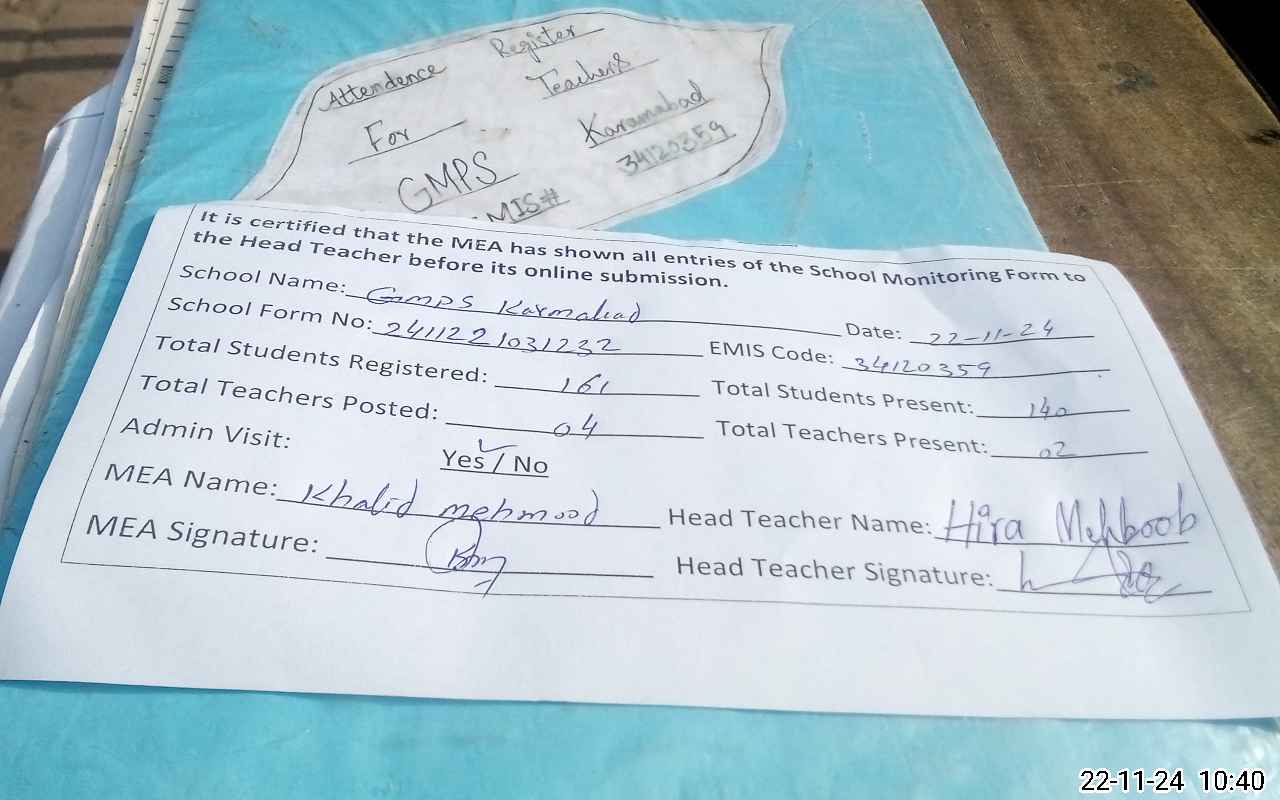 Attendence Register
For Teachers
GMPS Karamabad
MIS# 34120359
It is certified that the MEA has shown all entries of the School Monitoring Form to
the Head Teacher before its online submission.
School Name: Gmps Karmabad Date: 22-11-24
School Form No: 2411221031232 EMIS Code: 34120359
Total Students Registered: 161 Total Students Present: 140
Total Teachers Posted: 04 Total Teachers Present: 02
Admin Visit: Yes / No
MEA Name: Khalid mehmood Head Teacher Name: Hira Mehboob
MEA Signature: Head Teacher Signature:
22-11-24 10:40